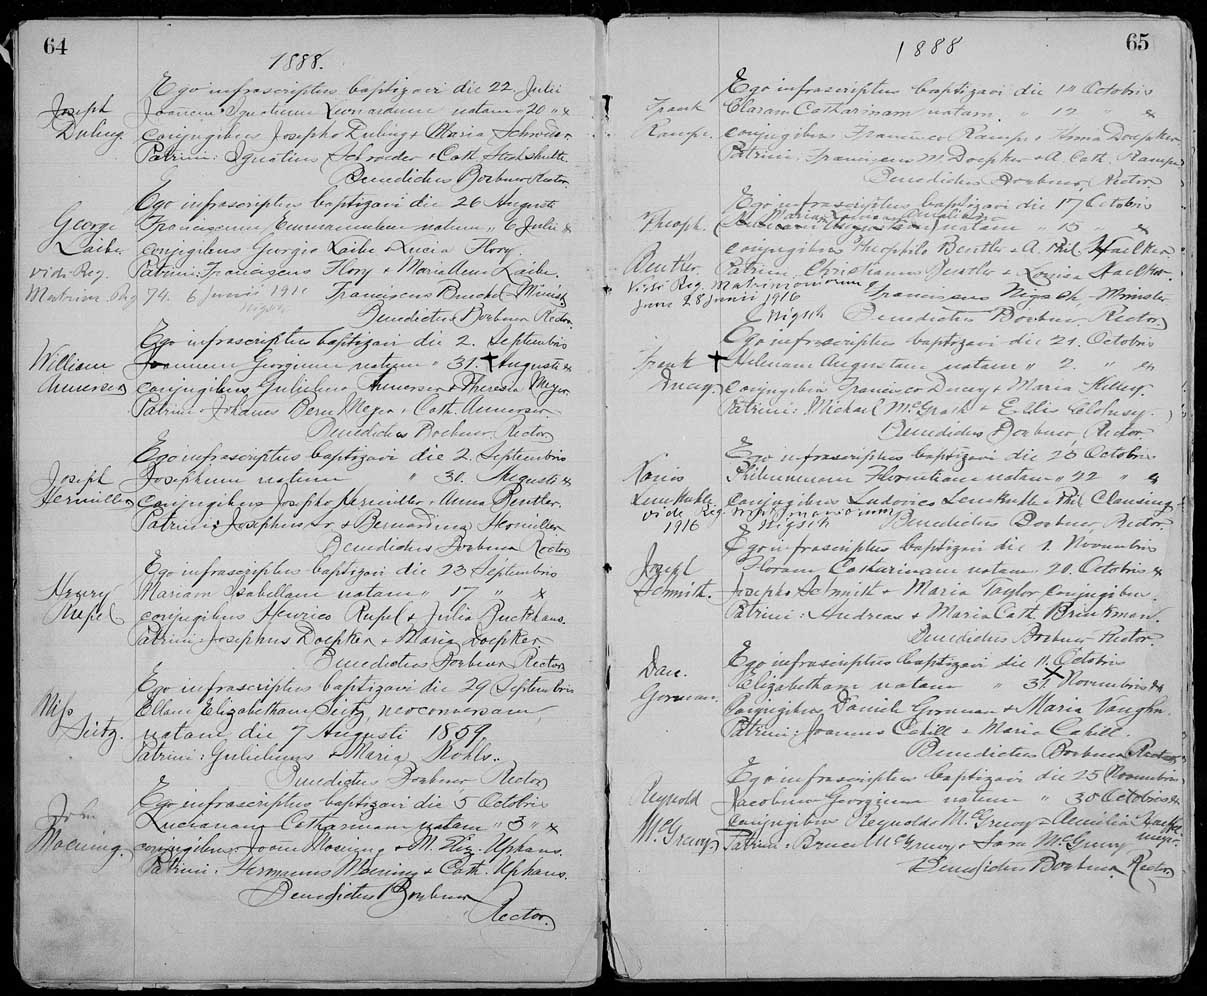 64
1888.
Ego infrascriptus baptizavi die 22 Julii
Joseph
Joannem Ignatium Leonardum natum " 20 " &
Duling
conjugibus Josepho Duling & Maria Schroeder
Patrini: Ignatius Schroeder & Cath.
Benedictus Boebner Rector
Ego infrascriptus baptizavi die 26 Augusti
George
Franciscum Emmanuelem natum " 6 Julii &
Laibe.
conjugibus Georgio Laibe & Lucia Flory.
vide Reg.
Patrini: Franciscus Flory & Laibe.
Matrim. Reg 74. 6 Junii 1911
Franciscus Minist.
Nigsch
Benedictus Boebner Rector.
Ego infrascriptus baptizavi die 2. Septembris
William
Joannem Georgium natum " 31. + Augusti &
conjugibus Gulielmo & Theresia Meyer
Patrini: Bern Meyer & Cath.
Benedictus Boebner Rector
Ego infrascriptus baptizavi die 2. Septembris
Joseph
Josephum natum " 30. Augusti &
Hermiller
conjugibus Josepho Hermiller & Anna Bentler.
Patrini: Josephus Sr. & Bernardina Hermiller
Benedictus Boebner Rector
Ego infrascriptus baptizavi die 23 Septembris
Henry
Mariam Isabellam natam " 17 " &
Rupel
conjugibus Henrico Rupel & Julia Buckhaus.
Patrini: Josephus Doepker & Maria Doepker
Benedictus Boebner Rector
Ego infrascriptus baptizavi die 29 Septembris
Miss
Ellam Elizabetham Seitz, neoconversam,
Seitz.
natam die 7 Augusti 1859.
Patrini: Gulielmus & Maria Kohls.
Benedictus Boebner Rector
Ego infrascriptus baptizavi die 5 Octobris
John
Catharinam natam " 3 " &
Moening.
conjugibus Joan Moening & M. Eliz. Uphaus.
Patrini: Hermanus Moening & Cath. Uphaus.
Benedictus Boebner
Rector.
65
1888
Ego infrascriptus baptizavi die 14 Octobris
Frank
Claram Catharinam natam " 12 " &
Rampe.
conjugibus Francisco Rampe & Anna Doepker.
Patrini: Franciscus M. Doepker & A. Cath. Rampe
Benedictus Boebner, Rector
Ego infrascriptus baptizavi die 17 Octobris
M. Mariam
Theoph.
natam " 15 " &
conjugibus Theophilo Bentler & A. Phil. Haelker.
Bentler.
Patrini: Christianus Bentler & Louisa Haelker
Vide Reg. Matrimoniorum
Franciscus Nigsch Minister
June 28 Junii 1916
Nigsch
Benedictus Boebner Rector.
Ego infrascriptus baptizavi die 21. Octobris
Frank
+ Helenam Augustam natam " 2. " &
Ducey.
conjugibus Francisco Ducey & Maria
Patrini: Michael McGrath & Ellis
Benedictus Boebner, Rector.
Ego infrascriptus baptizavi die 28 Octobris
Philomenam Florentiam natam " 22 " &
Lemkuhle.
conjugibus Ludovico Lemkuhle & Phil. Clausing.
vide Reg. Matrimoniorum
1916
Nigsch
Benedictus Boebner Rector.
Ego infrascriptus baptizavi die 1. Novembris
Joseph
Floram Catharinam natam " 20. Octobris &
Schmith.
Josepho Schmith & Maria Taylor conjugibus.
Patrini: Andreas & Maria Cath. Brinkman.
Benedictus Boebner Rector.
Ego infrascriptus baptizavi die 11. Octobris
Dan.
Elizabetham natam " 31. Novembris &
Gorman.
conjugibus Daniele Gorman & Maria Vaughn.
Patrini: Joannes Cahill & Maria Cahill.
Benedictus Boebner Rector
Ego infrascriptus baptizavi die 25 Novembris
Reynold
Jacobum Georgium natum " 30 Octobris &
conjugibus Reynoldo McGreevy &
McGreevy
Patrini: McGreevy & Sara McGreevy
Benedictus Boebner Rector